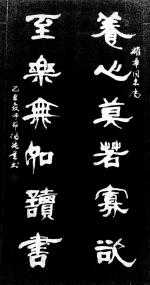 養心莫若寡欲
至樂無如讀書